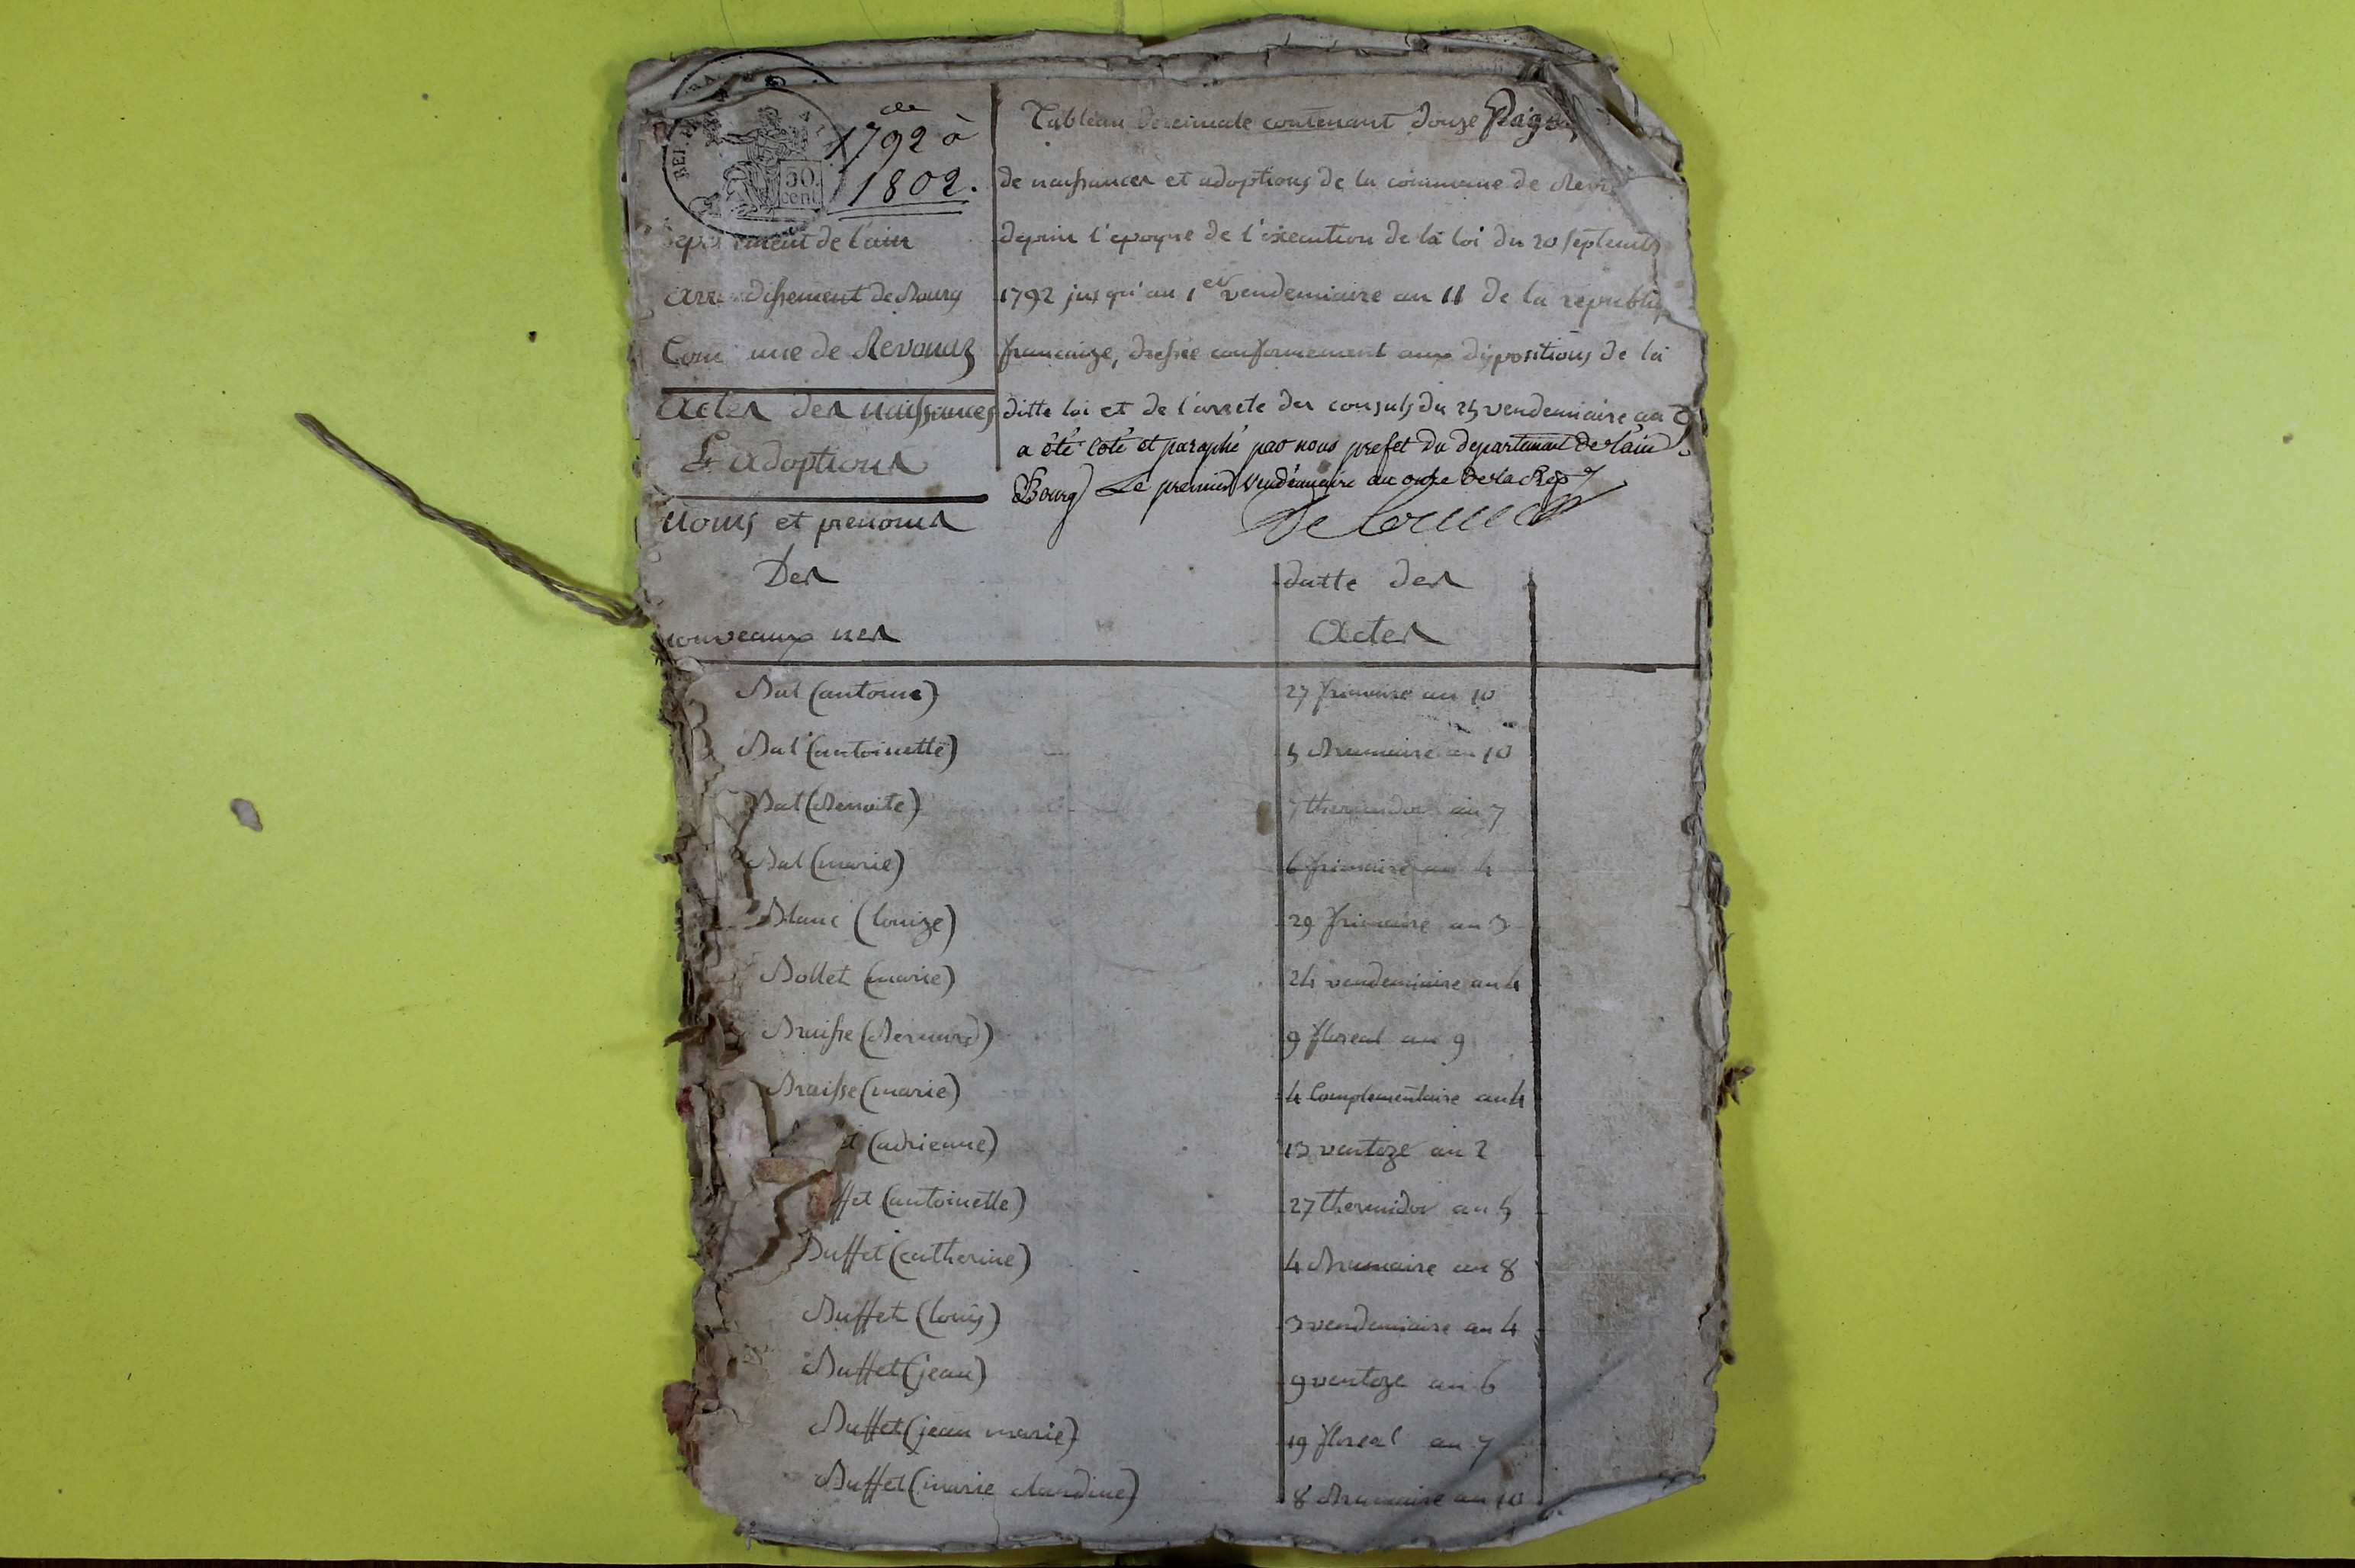 de
1792 à
1802.
50
cent
Tableau decimale contenant douze Pages
de naissances et adoptions de la commune de Revo
departement de l'ain
depuis l'epoque de l'execution de la loi du 20 septemb
arrondissement de Bourg
1792 jusqu'au 1er vendemiaire an 11 de la republiq
Commune de Revonaz
francaize, dressée conformement aux dispositions de la
Actes des naissances
ditte loi et de l'arrete des consuls du 25 vendemiaire an 9
a été coté et paraphé par nous prefet du departement de l'ain
Et adoptions
Bourg Le premier Vendémiaire an onze de la Rep
noms et prenoms
Des
datte des
nouveaux nes
Actes
Bal (antoine) 27 frimaire an 10
Bal (antoinette) 5 Brumaire an 10
Bal (Benoite) thermidor an 7
Bal (marie) 6 frimaire an 4
Blanc (louize) 29 frimaire an 3
Bollet (marie) 24 vendemiaire an 4
Braisse (Bernard) 9 floreal an 9
Braisse (marie) 4 Complementaire an 4
et (adrienne) 13 ventoze an 2
ffet (antoinette) 27 thermidor an 5
Buffet (catherine) 4 Brumaire an 8
Buffet (louis) 3 vendemiaire an 4
Buffet (jean) 9 ventoze an 6
Buffet (jean marie) 19 floreal an 7
Buffet (marie claudine) 8 Brumaire an 10